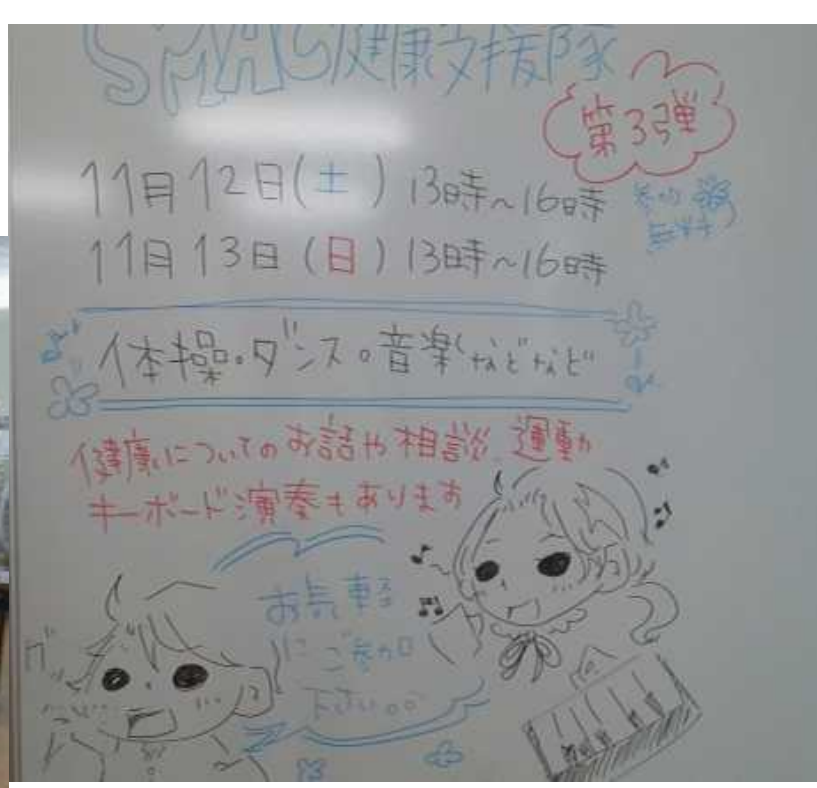 SMAC健康支援隊
第3弾
11月12日(土) 13時~16時
参加費
無料
11月13日(日) 13時~16時
体操・ダンス。音楽などなど
健康についてのお話や相談、運動か
キーボード演奏もあります
お気軽
にご参加
下さい。。
グッ